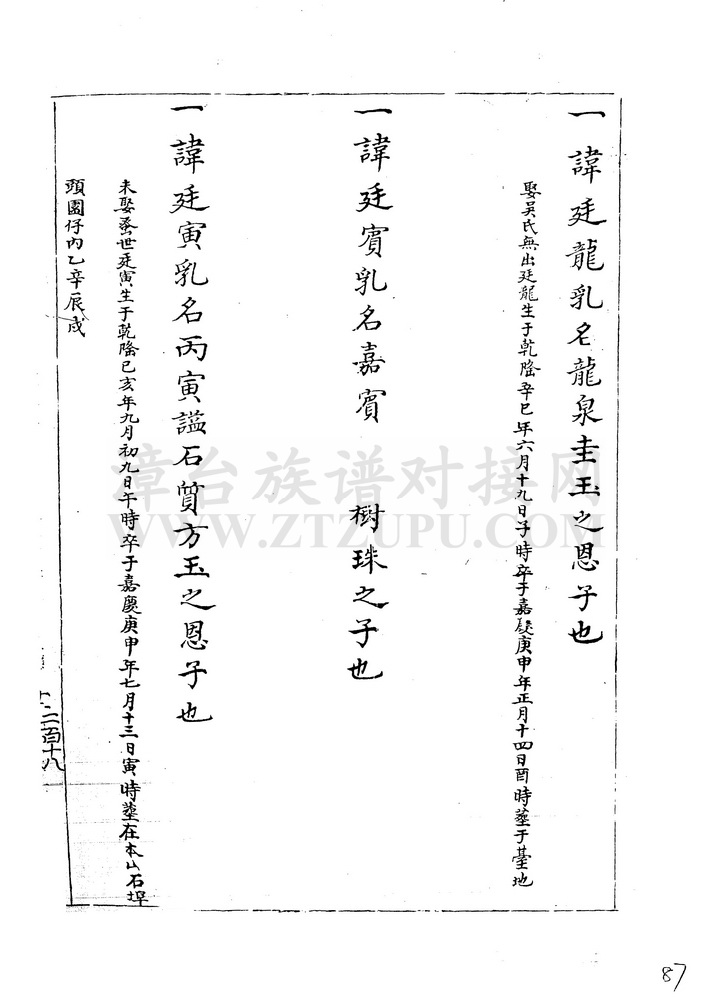 一諱廷龍乳名龍泉圭玉之恩子也
娶吳氏無出廷龍生于乾隆辛巳年六月十九日子時卒于嘉慶庚申年正月十四日酉時塟于臺地
一諱廷賓乳名嘉賓 樹珠之子也
一諱廷寅乳名丙寅謚石質方玉之恩子也
未娶 世廷寅生于乾隆己亥年九月初九日午時卒于嘉慶庚申年七月十三日寅時塟在本山石埕
頭園仔內乙辛辰戌
二百十八
漳台族谱对接网
WWW.ZTZUPU.COM
87